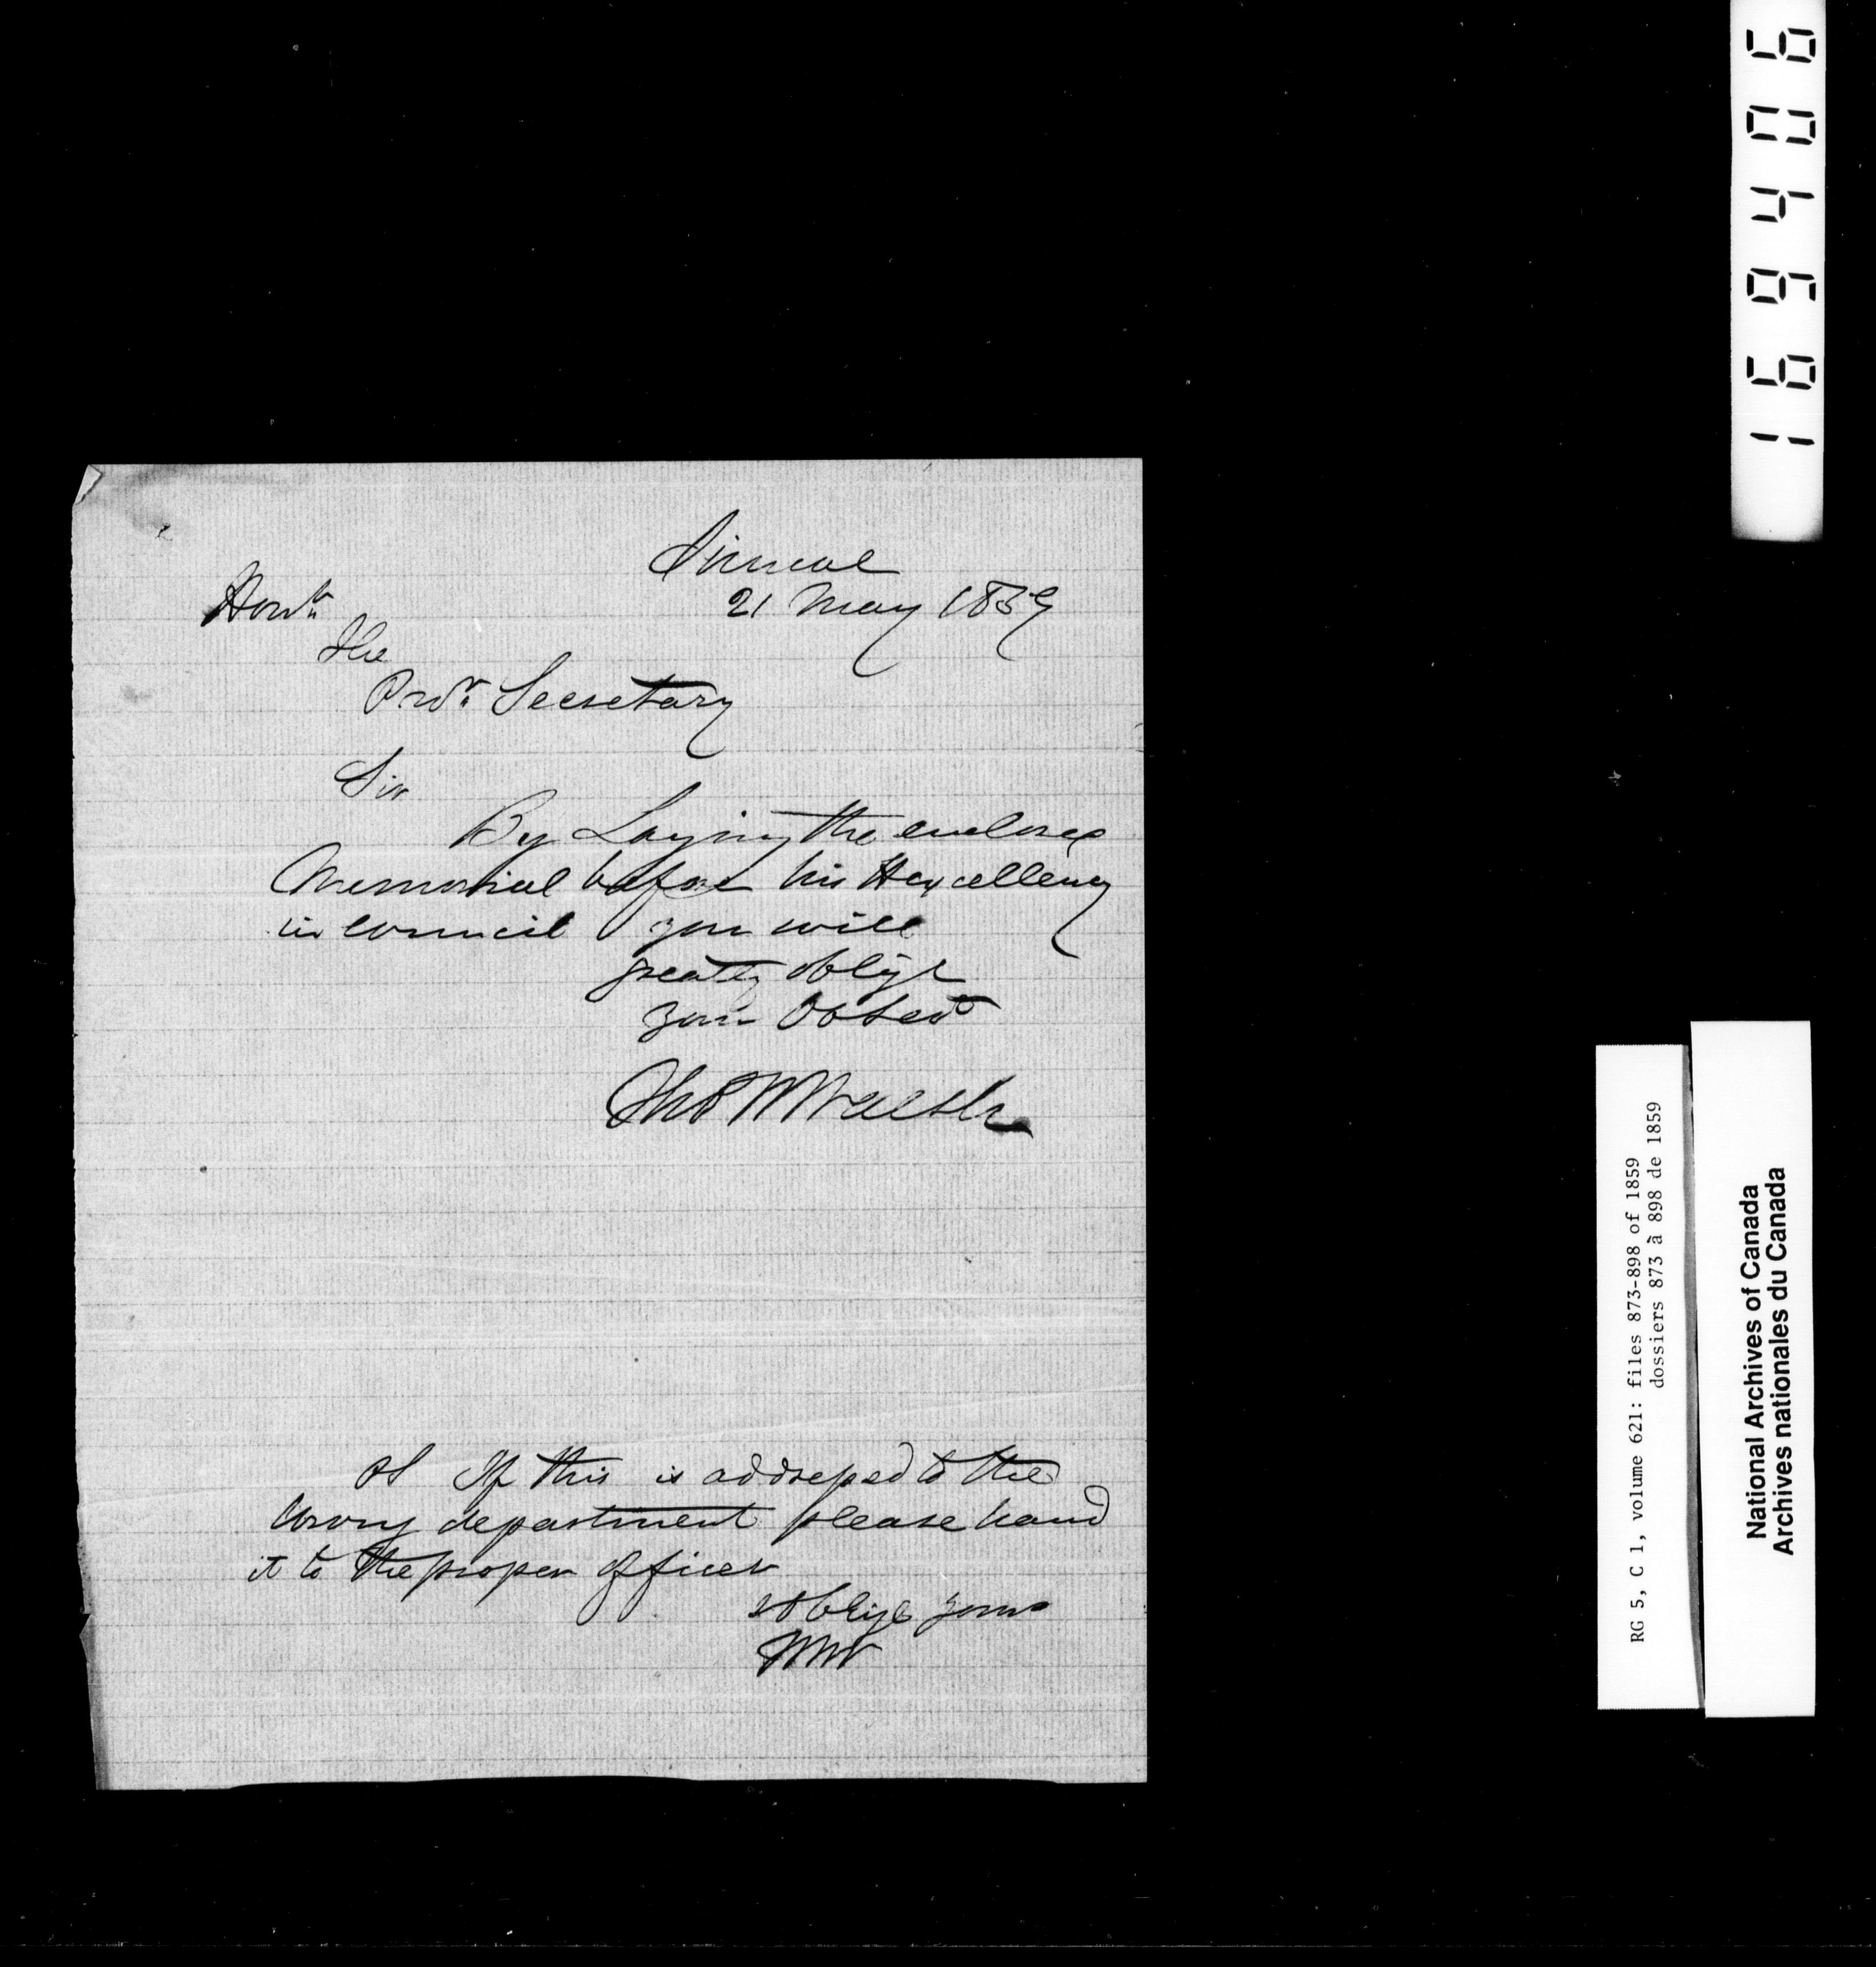 Simcoe
21 May 1859
Honble
The
Prov. Secretary
Sir
By Laying the enclosed
Memorial before his Hexcellency
in council you will
greatly oblige
your Obt Servt
Thos W Walsh
PS If this is addressed to the
wrong department please hand
it to the proper officer
& oblige yours
TWW
169406
RG 5, C 1, volume 621: files 873-898 of 1859
dossiers 873 à 898 de 1859
National Archives of Canada
Archives nationales du Canada